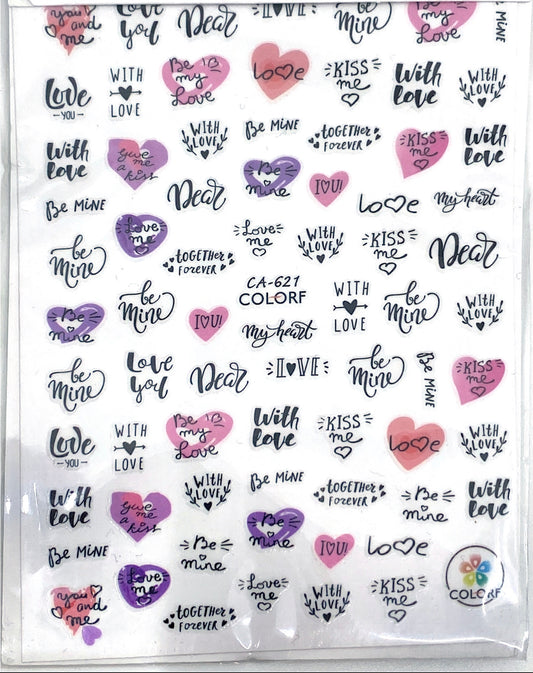 you and me
Love you
Dear
LOVE
be Mine
Be my Love
BE MINE
Love YOU
WITH LOVE
Be my Love
Love
KISS me
With love
WITH LOVE
With love
Give me a kiss
WITH LOVE
BE MINE
TOGETHER FOREVER
KISS me
With love
BE MINE
Dear
Be mine
I U!
Love
My heart
be Mine
Love me
TOGETHER FOREVER
Love me
WITH LOVE
KISS me
Dear
CA-621
COLORF
Be mine
be Mine
I U!
My heart
WITH LOVE
be Mine
WITH LOVE
be Mine
Love you
Dear
LOVE
be Mine
BE MINE
KISS me
Love YOU
WITH LOVE
Be my Love
With love
KISS me
Love
WITH LOVE
With love
Give me a kiss
WITH LOVE
BE MINE
TOGETHER FOREVER
Be mine
With love
BE MINE
Be mine
Be mine
I U!
Love
you and me
Love me
TOGETHER FOREVER
Love me
WITH LOVE
KISS me
COLORF